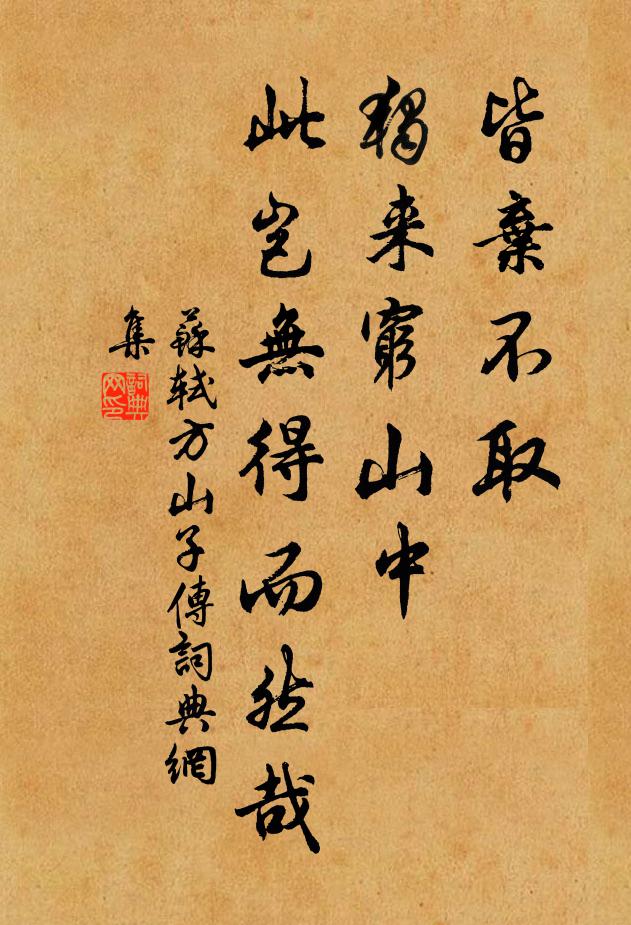 皆棄不取
獨来窮山中
此豈無得而然哉
蘇軾方山子傳詞典網
集
詞典
网印